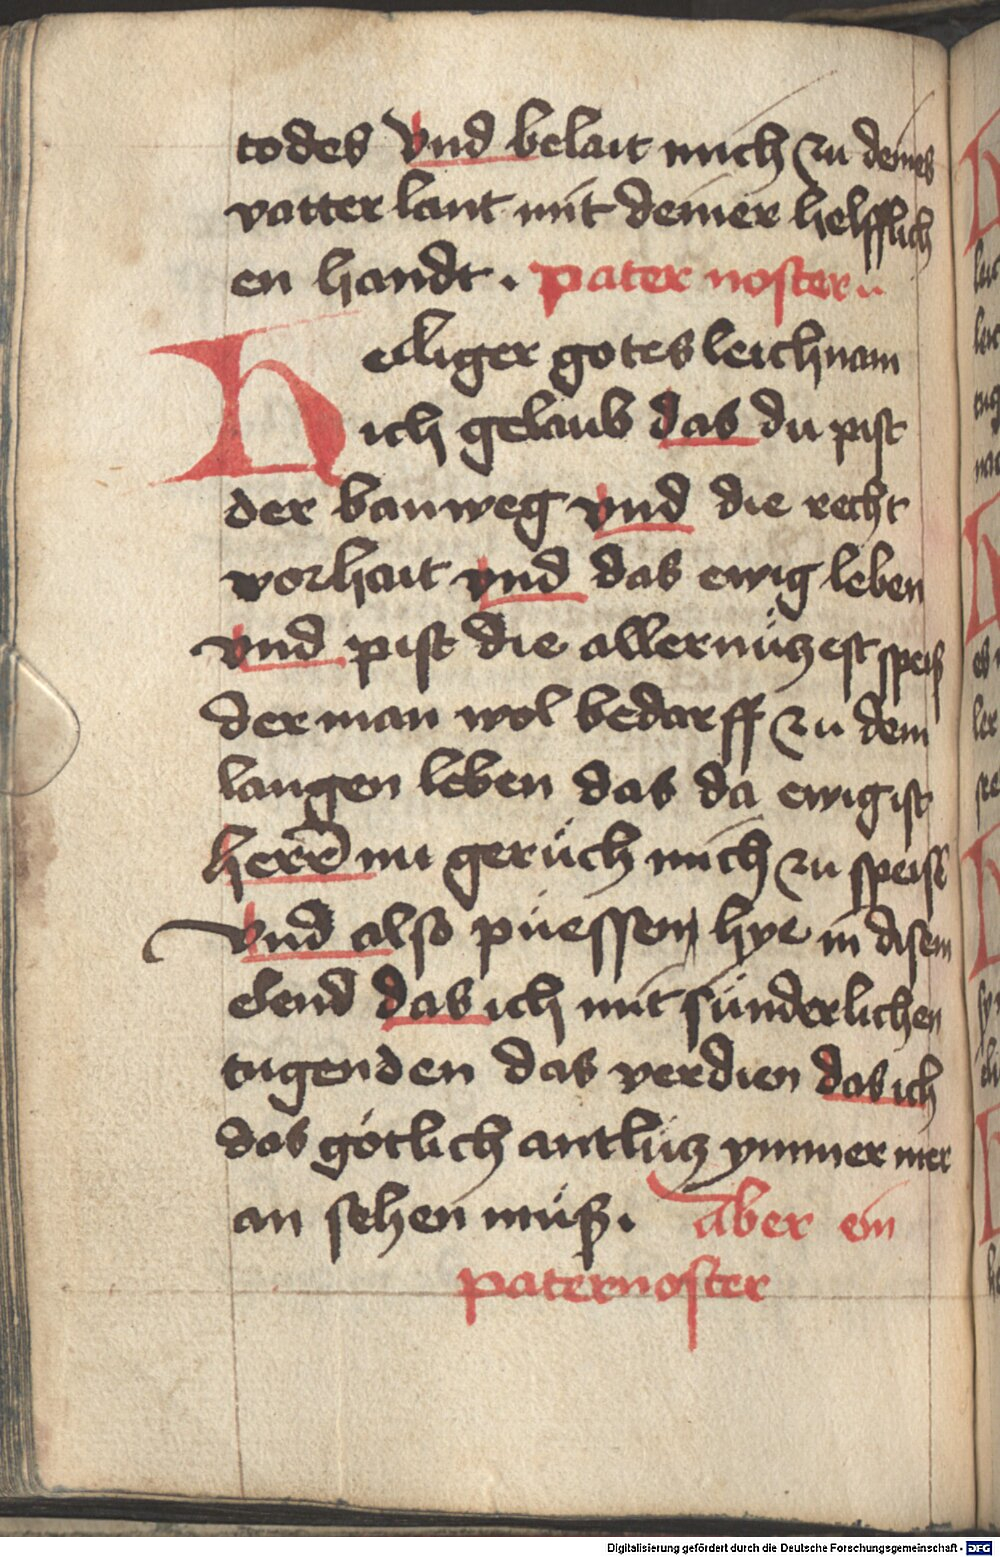 todes vnd belait mich zu deines
vatter lant mit deiner helfflich
en handt. pater noster
Heiliger gotes leichnam
ich gelaub das du pist
der banweg vnd die recht
worhait vnd das ewig leben
vnd pist die allernüczest speiß
der man wol bedarff zu dem
langen leben das da ewig ist
herr̄e nu gerüch mich zu speisē
vnd also püessen hye in disem
elend das ich mit sünderlichen
tugenden das verdien das ich
das götlich antlücz ymmer mer
an sehen müß. aber ein
paternoster
Digitalisierung gefördert durch die Deutsche Forschungsgemeinschaft - DFG